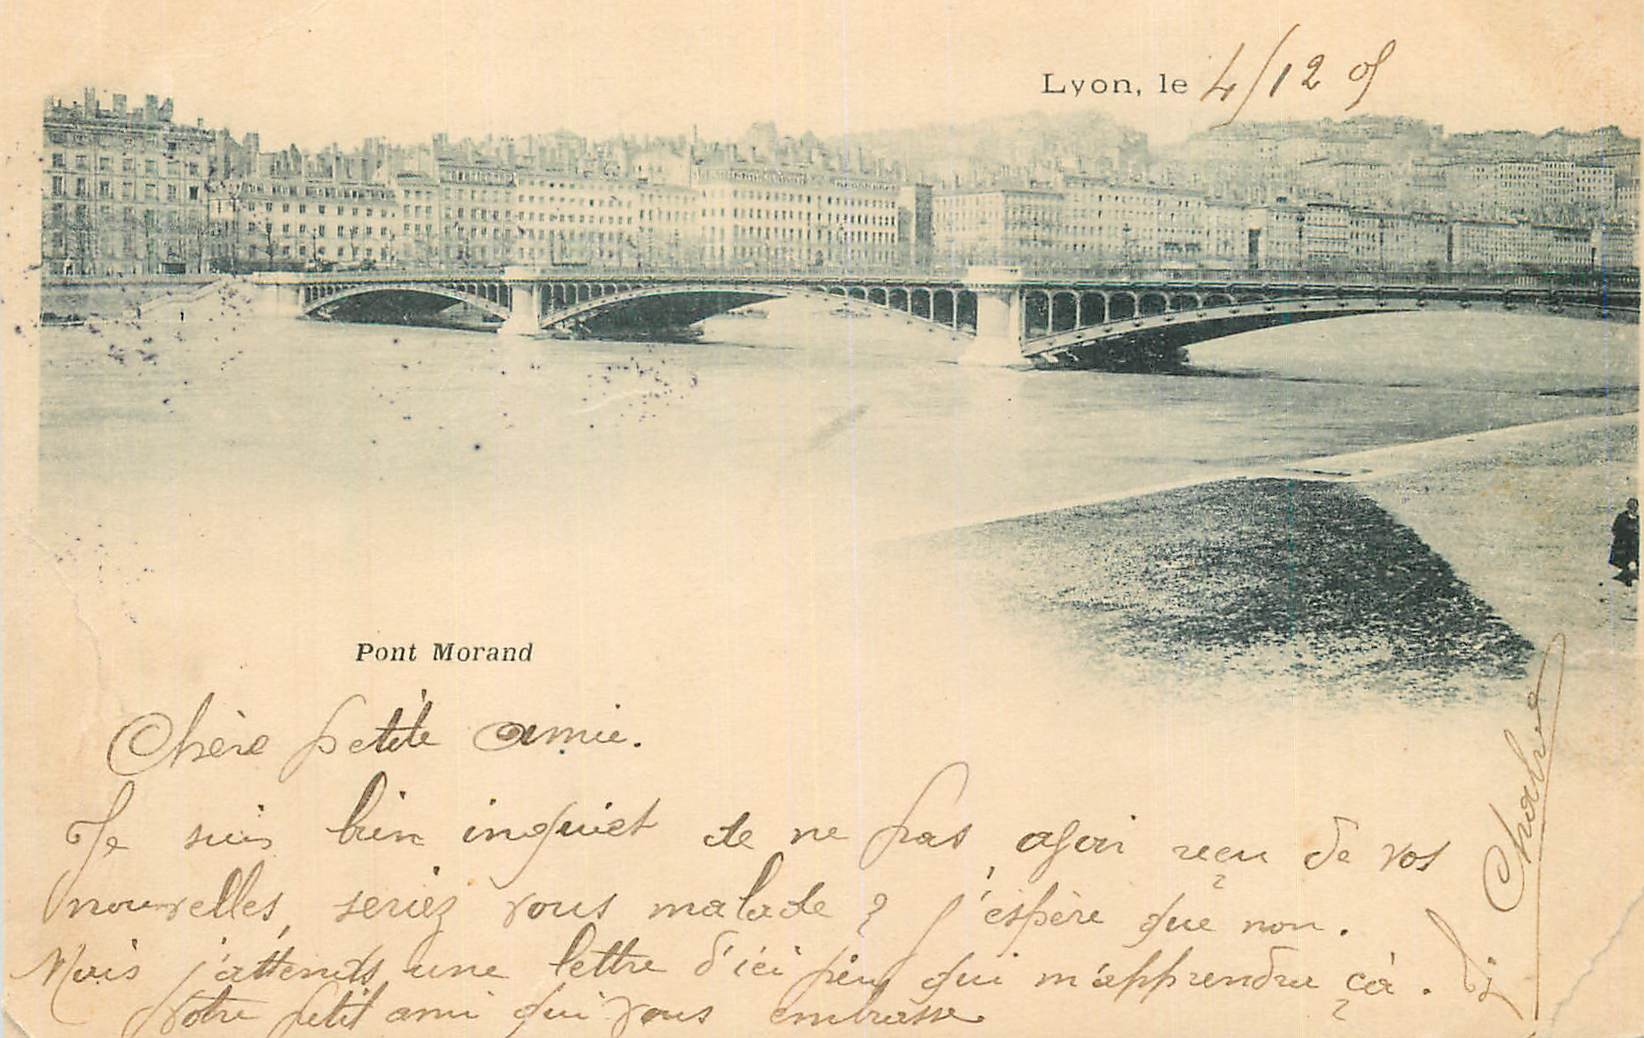 Lyon, le 4/12 05
Pont Morand
Chère petite amie.
Je suis bien inquiet de ne pas avoir reçu de vos
nouvelles, seriez vous malade ? j'éspère que non.
Mais j'attends une lettre d'ici peu qui m'apprendra çà.
Votre petit ami qui vous embrasse